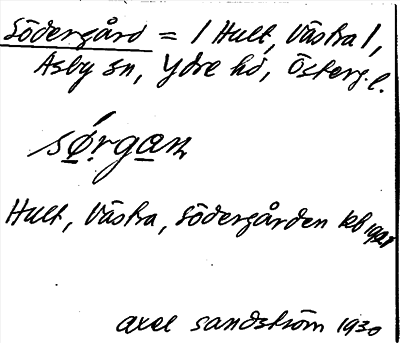 Södergård = / Hult, Västra /,
Asby sn, Ydre hd, Österg.l.
sørgan
Hult, Västra, Södergården kb
Axel Sandström 1930